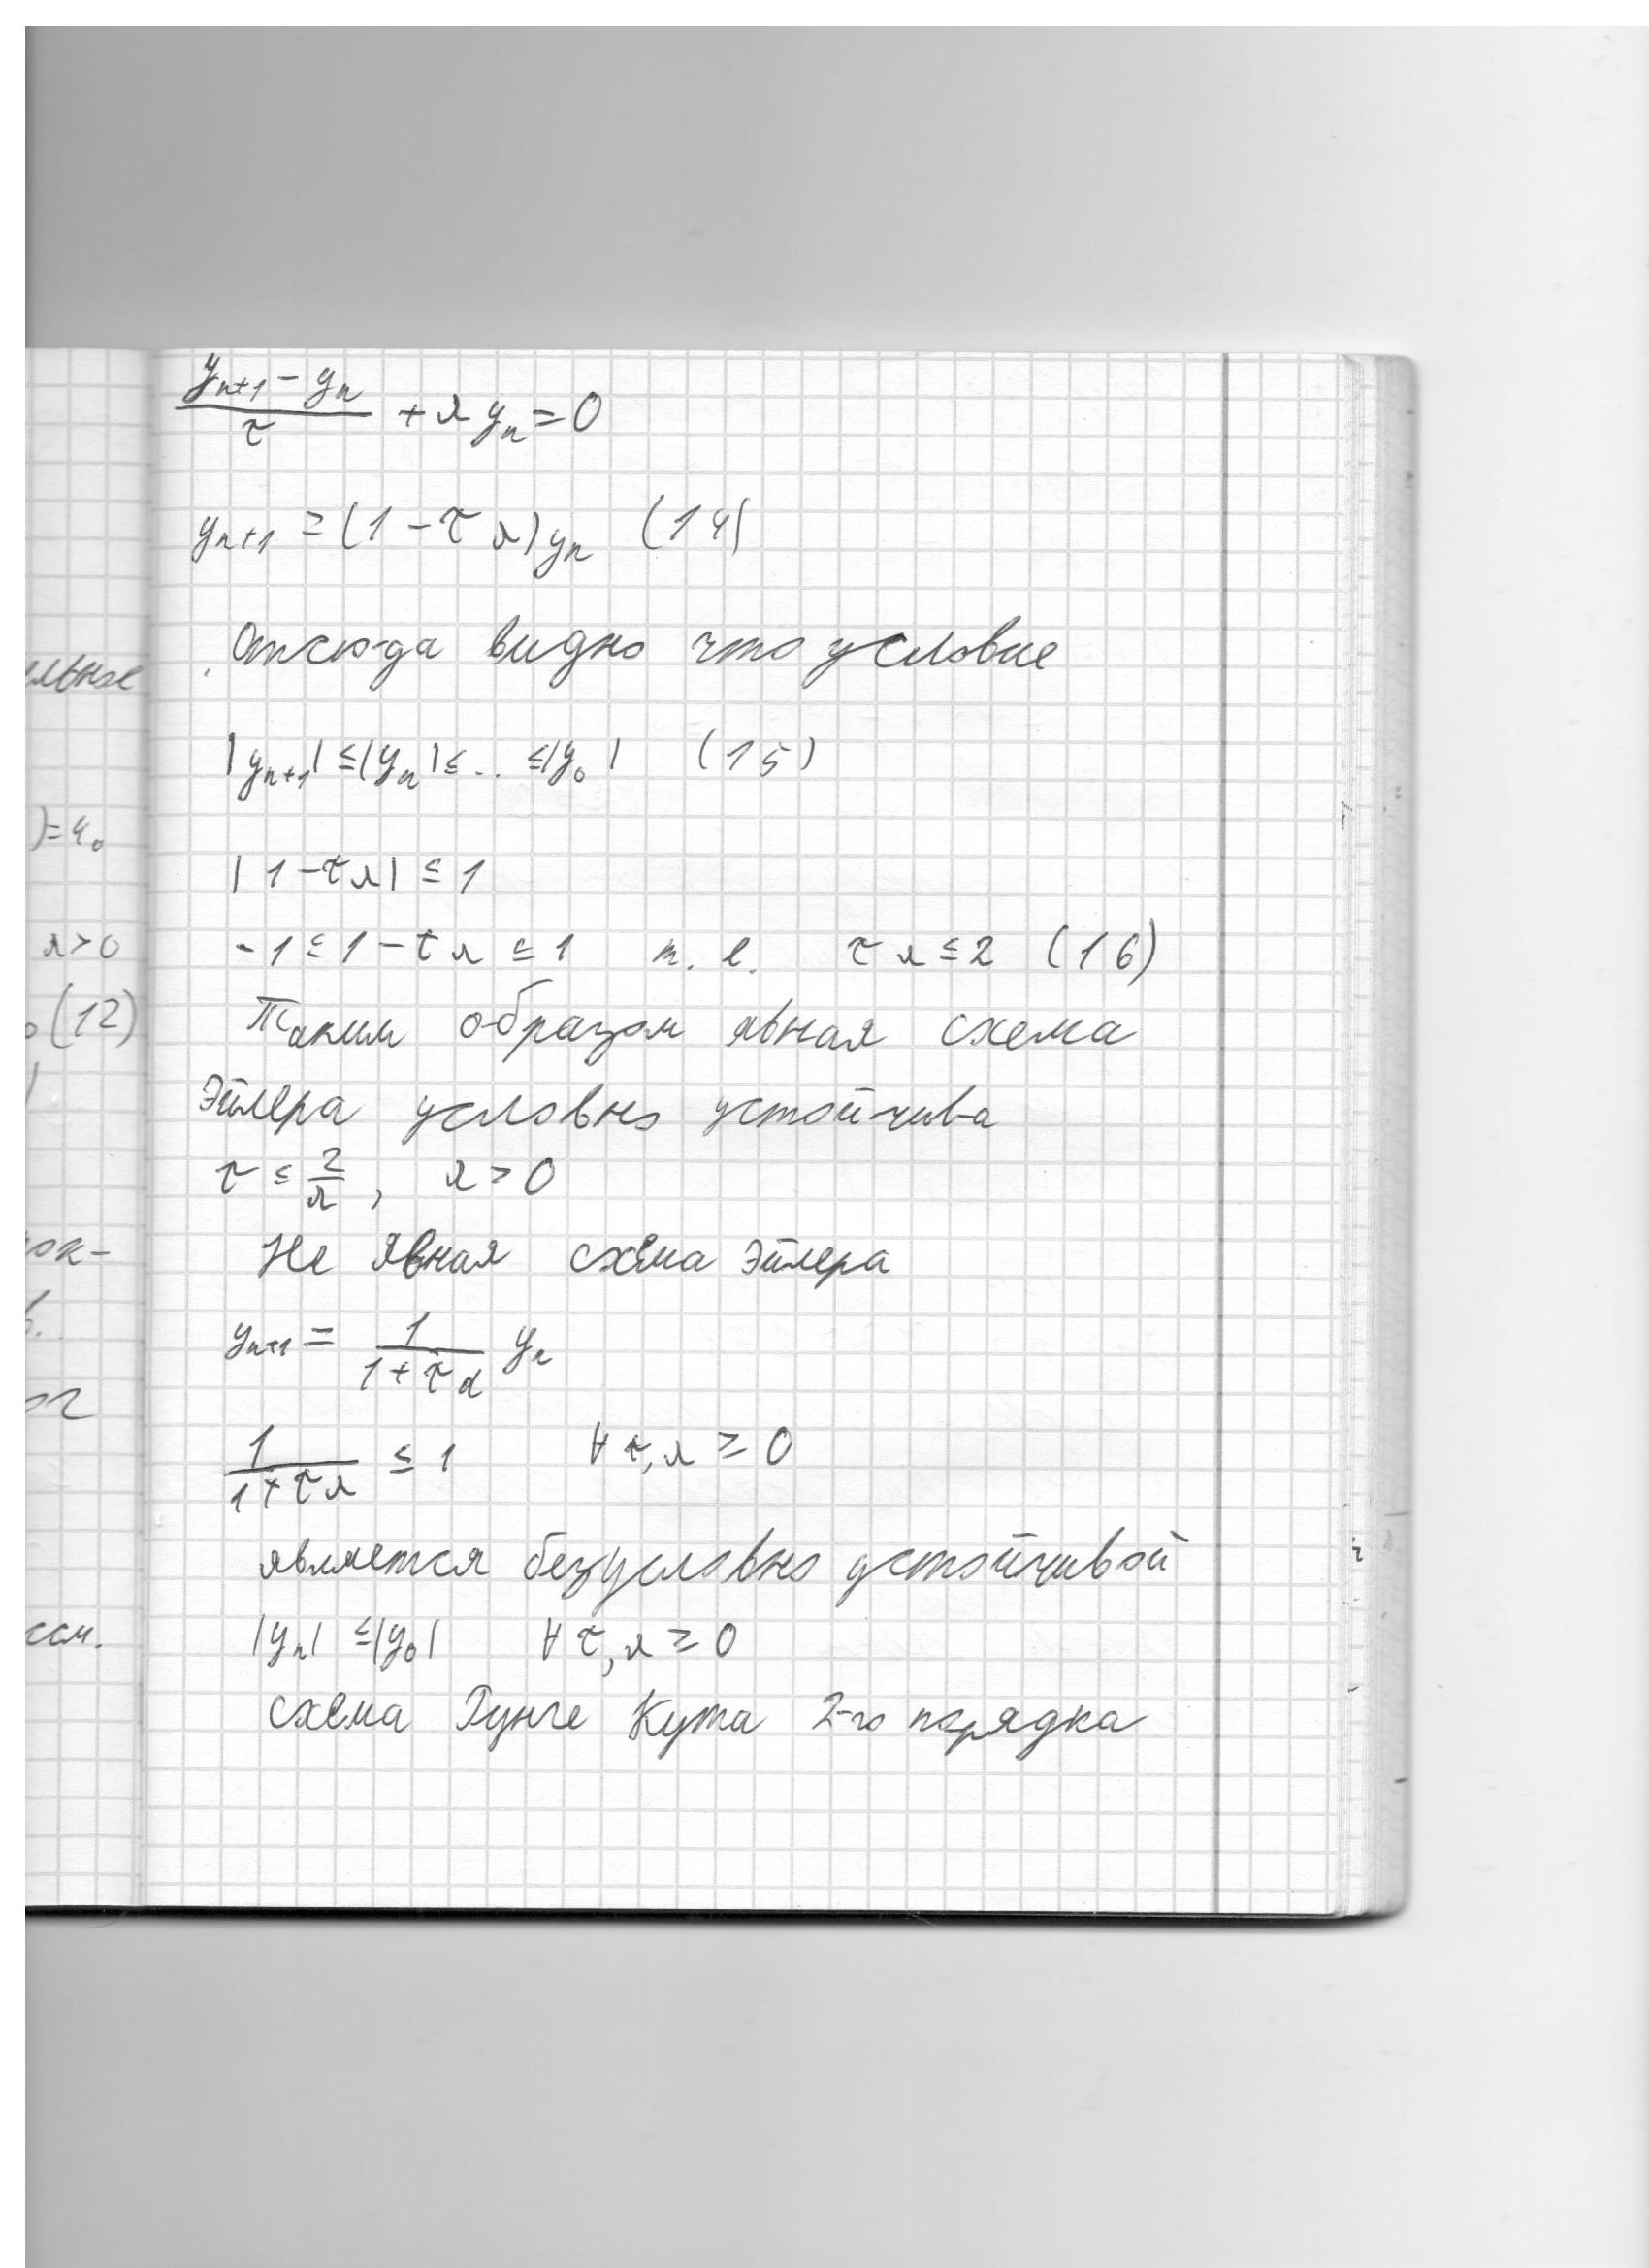 льные
)=y₀
λ>0
(12)
ок-
ог
ссм.
(yₙ₊₁ - yₙ)/τ + λ yₙ = 0
yₙ₊₁ = (1 - τ λ) yₙ (14)
Отсюда видно что условие
|yₙ₊₁| ≤ |yₙ| ≤ .. ≤ |y₀| (15)
|1 - τ λ| ≤ 1
-1 ≤ 1 - τ λ ≤ 1 т. е. τ λ ≤ 2 (16)
Таким образом явная схема
Эйлера условно устойчива
τ ≤ 2/λ, λ > 0
Не явная схема Эйлера
yₙ₊₁ = 1/(1 + τ λ) yₙ
1/(1 + τ λ) ≤ 1 ∀ τ, λ ≥ 0
является безусловно устойчивой
|yₙ| ≤ |y₀| ∀ τ, λ ≥ 0
схема Рунге Кута 2-го порядка